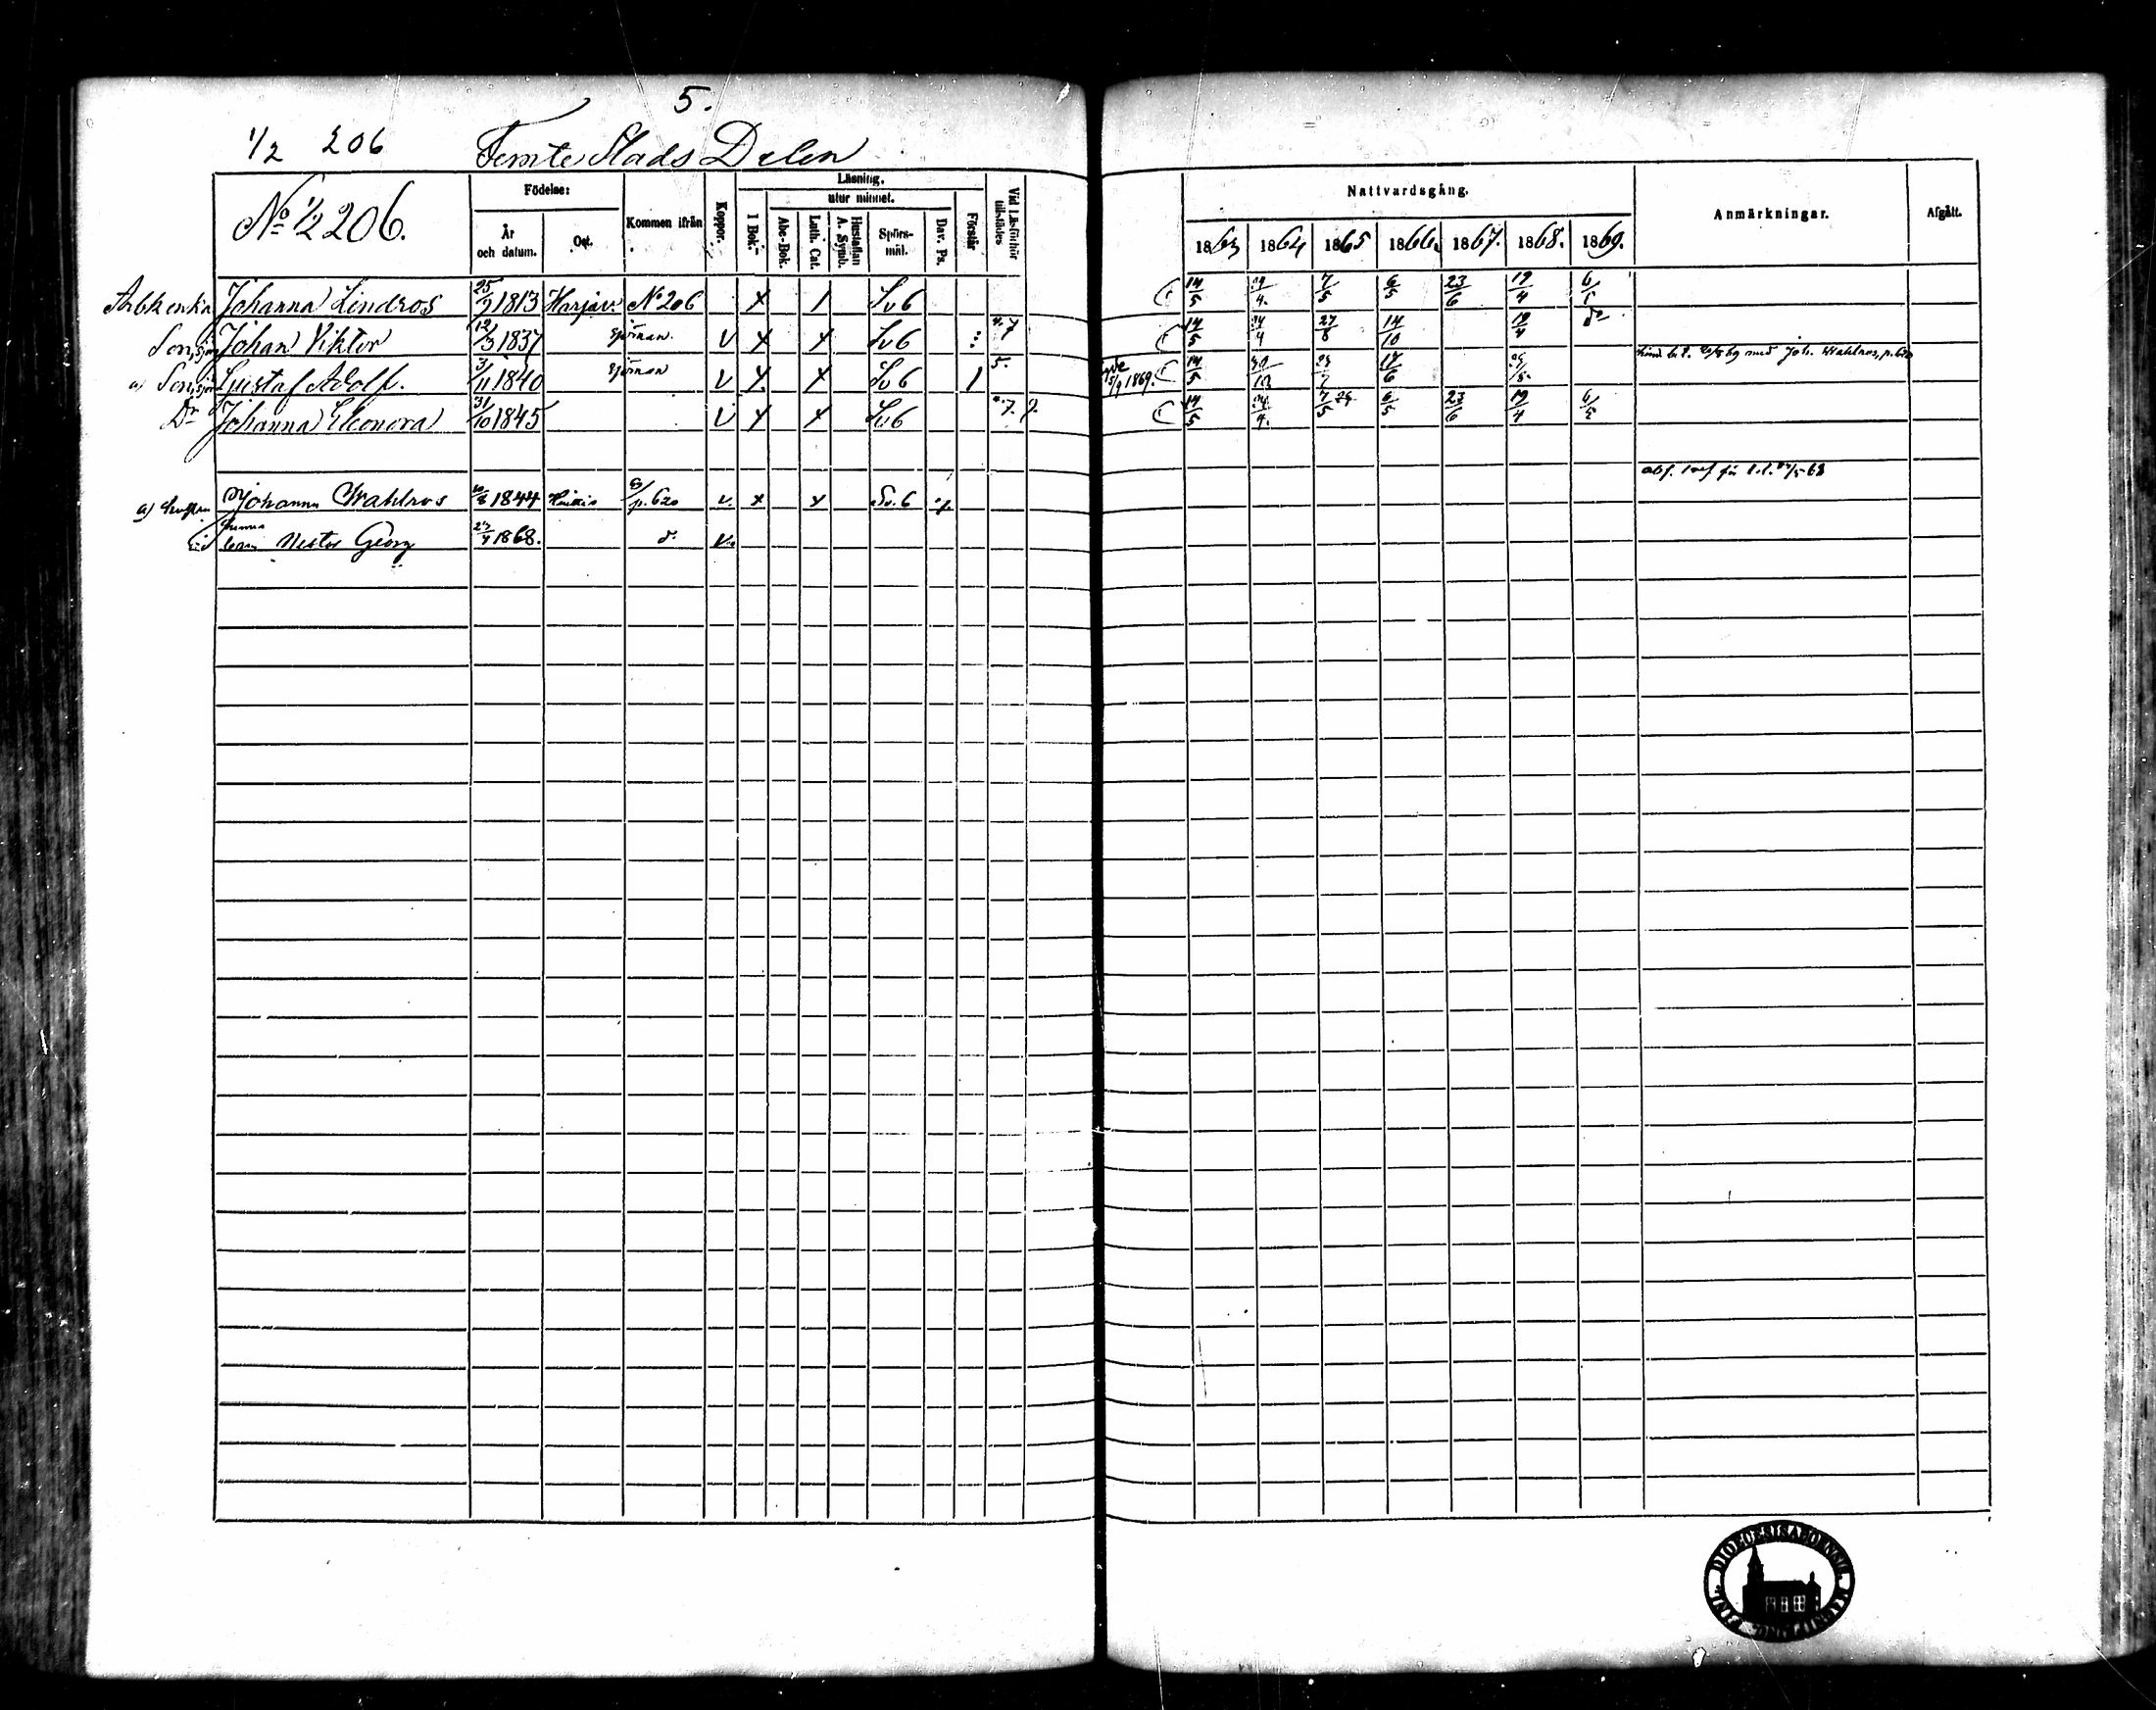 5.
1/2 206 Femte Stads Delen
No 1/2 206.
Födelse:
År och datum.
Ort.
Kommen ifrån
Koppor.
Läsning.
utur minnet.
I Bok.
Abc-Bok.
Luth. Cat.
Hustaflan A. Symb.
Spörsmål.
Dav. Ps.
Förstår
Vid Läsförhör tillstädes
Nattvardsgång.
1863 1864 1865 1866 1867. 1868. 1869.
Anmärkningar.
Afgått.
Arbk enka Johanna Lindros 25/9 1813 Harjav. No 206 x 1 Sv 6 14/5 24/4. 7/5 6/5 23/6 19/4 6/5
Son, sjöm Johan Viktor 12/3 1837 sjöman. v x x Sv 6 14/5 24/4 27/8 14/10 19/4 do
a) Son, sjöm Gustaf Adolf. 3/11 1840 sjöman v x x Sv 6 1 5. 5/9 1869. 14/5 30/10 17/6 med Joh. Wahlros, p. 620
Dr Johanna Eleonora 31/10 1845 v x x Sv 6 7. 9. 14/5 24/4. 7/5 6/5 23/6 19/4 6/5
a) hustru Johanna Wahlros 1844 p. 620 v. x x Sv. 6
Nestor Georg 1868. d. v.
DIOECESIS ABOENSIS